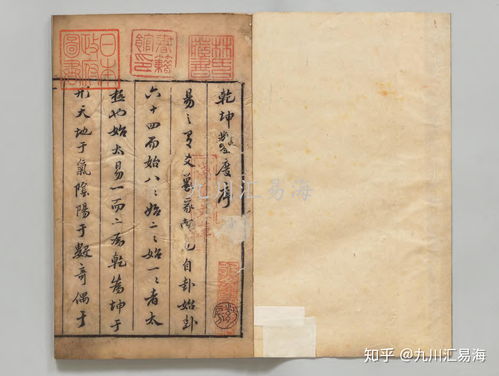 日本政府圖書
書籍館印
林氏藏書
乾坤鑿度序
易之有爻彖象尚已自卦始卦
六十四而始八〻始二〻始一〻者太
極也始太易一而二為乾為坤于
形天地于氣陰陽于數奇偶于
九川汇易海
知乎 @九川汇易海